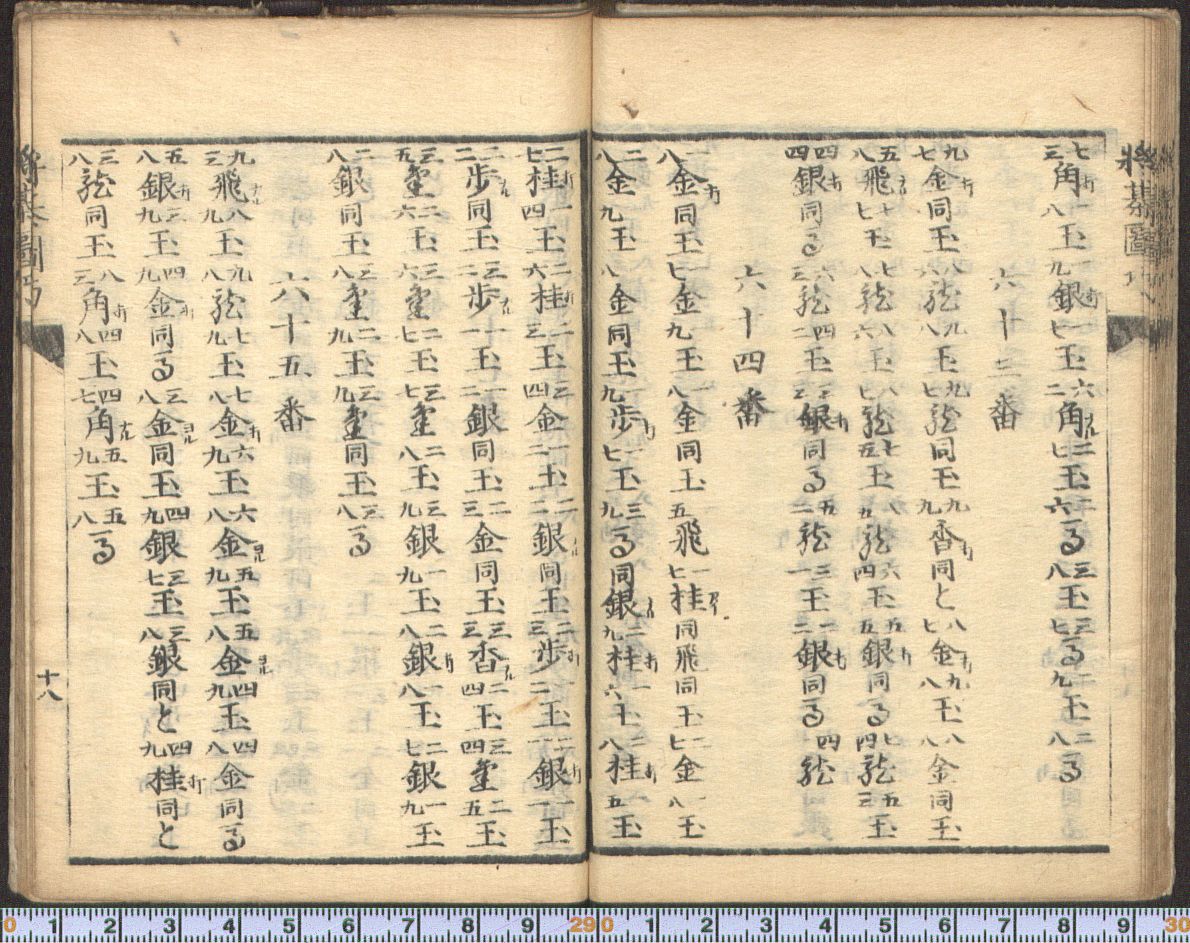 将棊圖巧
六十三番
七三角打一八玉一九銀打二七玉六二角ナル二七玉六馬三八玉三七馬二九玉二八馬
九七金打同玉八六龍九八玉九七龍同玉九九香打同と八七金打九八玉八八金同玉
五八飛ナル七七玉七八龍八六玉八七龍七五玉八九龍六四玉五五銀打同馬七四龍五三玉
四四銀打同馬六三龍四二玉三三銀打同馬五二龍三一玉二二銀打同馬四龍
六十四番
一八金打同玉二七金一九玉一八金同玉一五飛一七桂合同飛同玉二七金一八玉
二八金一九玉一八金同玉一九歩打一七玉三九馬同銀ナル二九桂打一六玉二八桂打一五玉
二七桂打一四玉二六桂打一三玉三四金一二玉二二銀ナル同玉二三歩打一二玉銀打一一玉
二二歩ナル同玉三二歩ナル一一玉二二銀同玉三二金同玉三三香ナル二四玉三四圭二五玉
三五圭二六玉三六圭二七玉三七圭二八玉三九銀一九玉二八銀打一八玉二七銀一九玉
二八銀同玉三八圭二九玉三九圭同玉三八馬
六十五番
九三飛ナル八九玉九八龍七九玉七八金打六九玉六八金ヨル五九玉五八金ヨル四九玉四八金同馬
五八銀打三九玉四九金打同馬三八金ヨル同玉四九銀三七玉三八銀同と四九桂打同と
三八龍同玉八三角打四八玉四七角ナル五九玉五八馬
将棊圖巧
十八